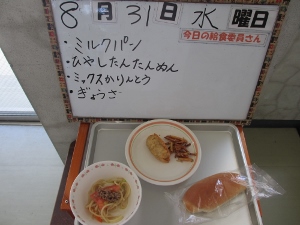 8月31日水曜日
今日の給食委員さん
・ミルクパン
・ひやしたんたんめん
・ミックスかりんとう
・ぎょうざ